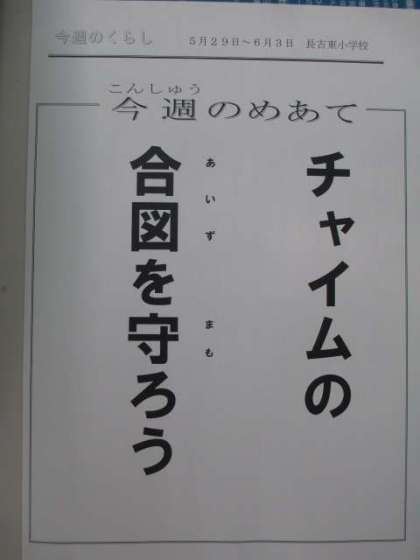 今週のくらし　5月29日～6月3日　長古東小学校
こんしゅう
今週のめあて
チャイムの
合図を守ろう
あいず　まも